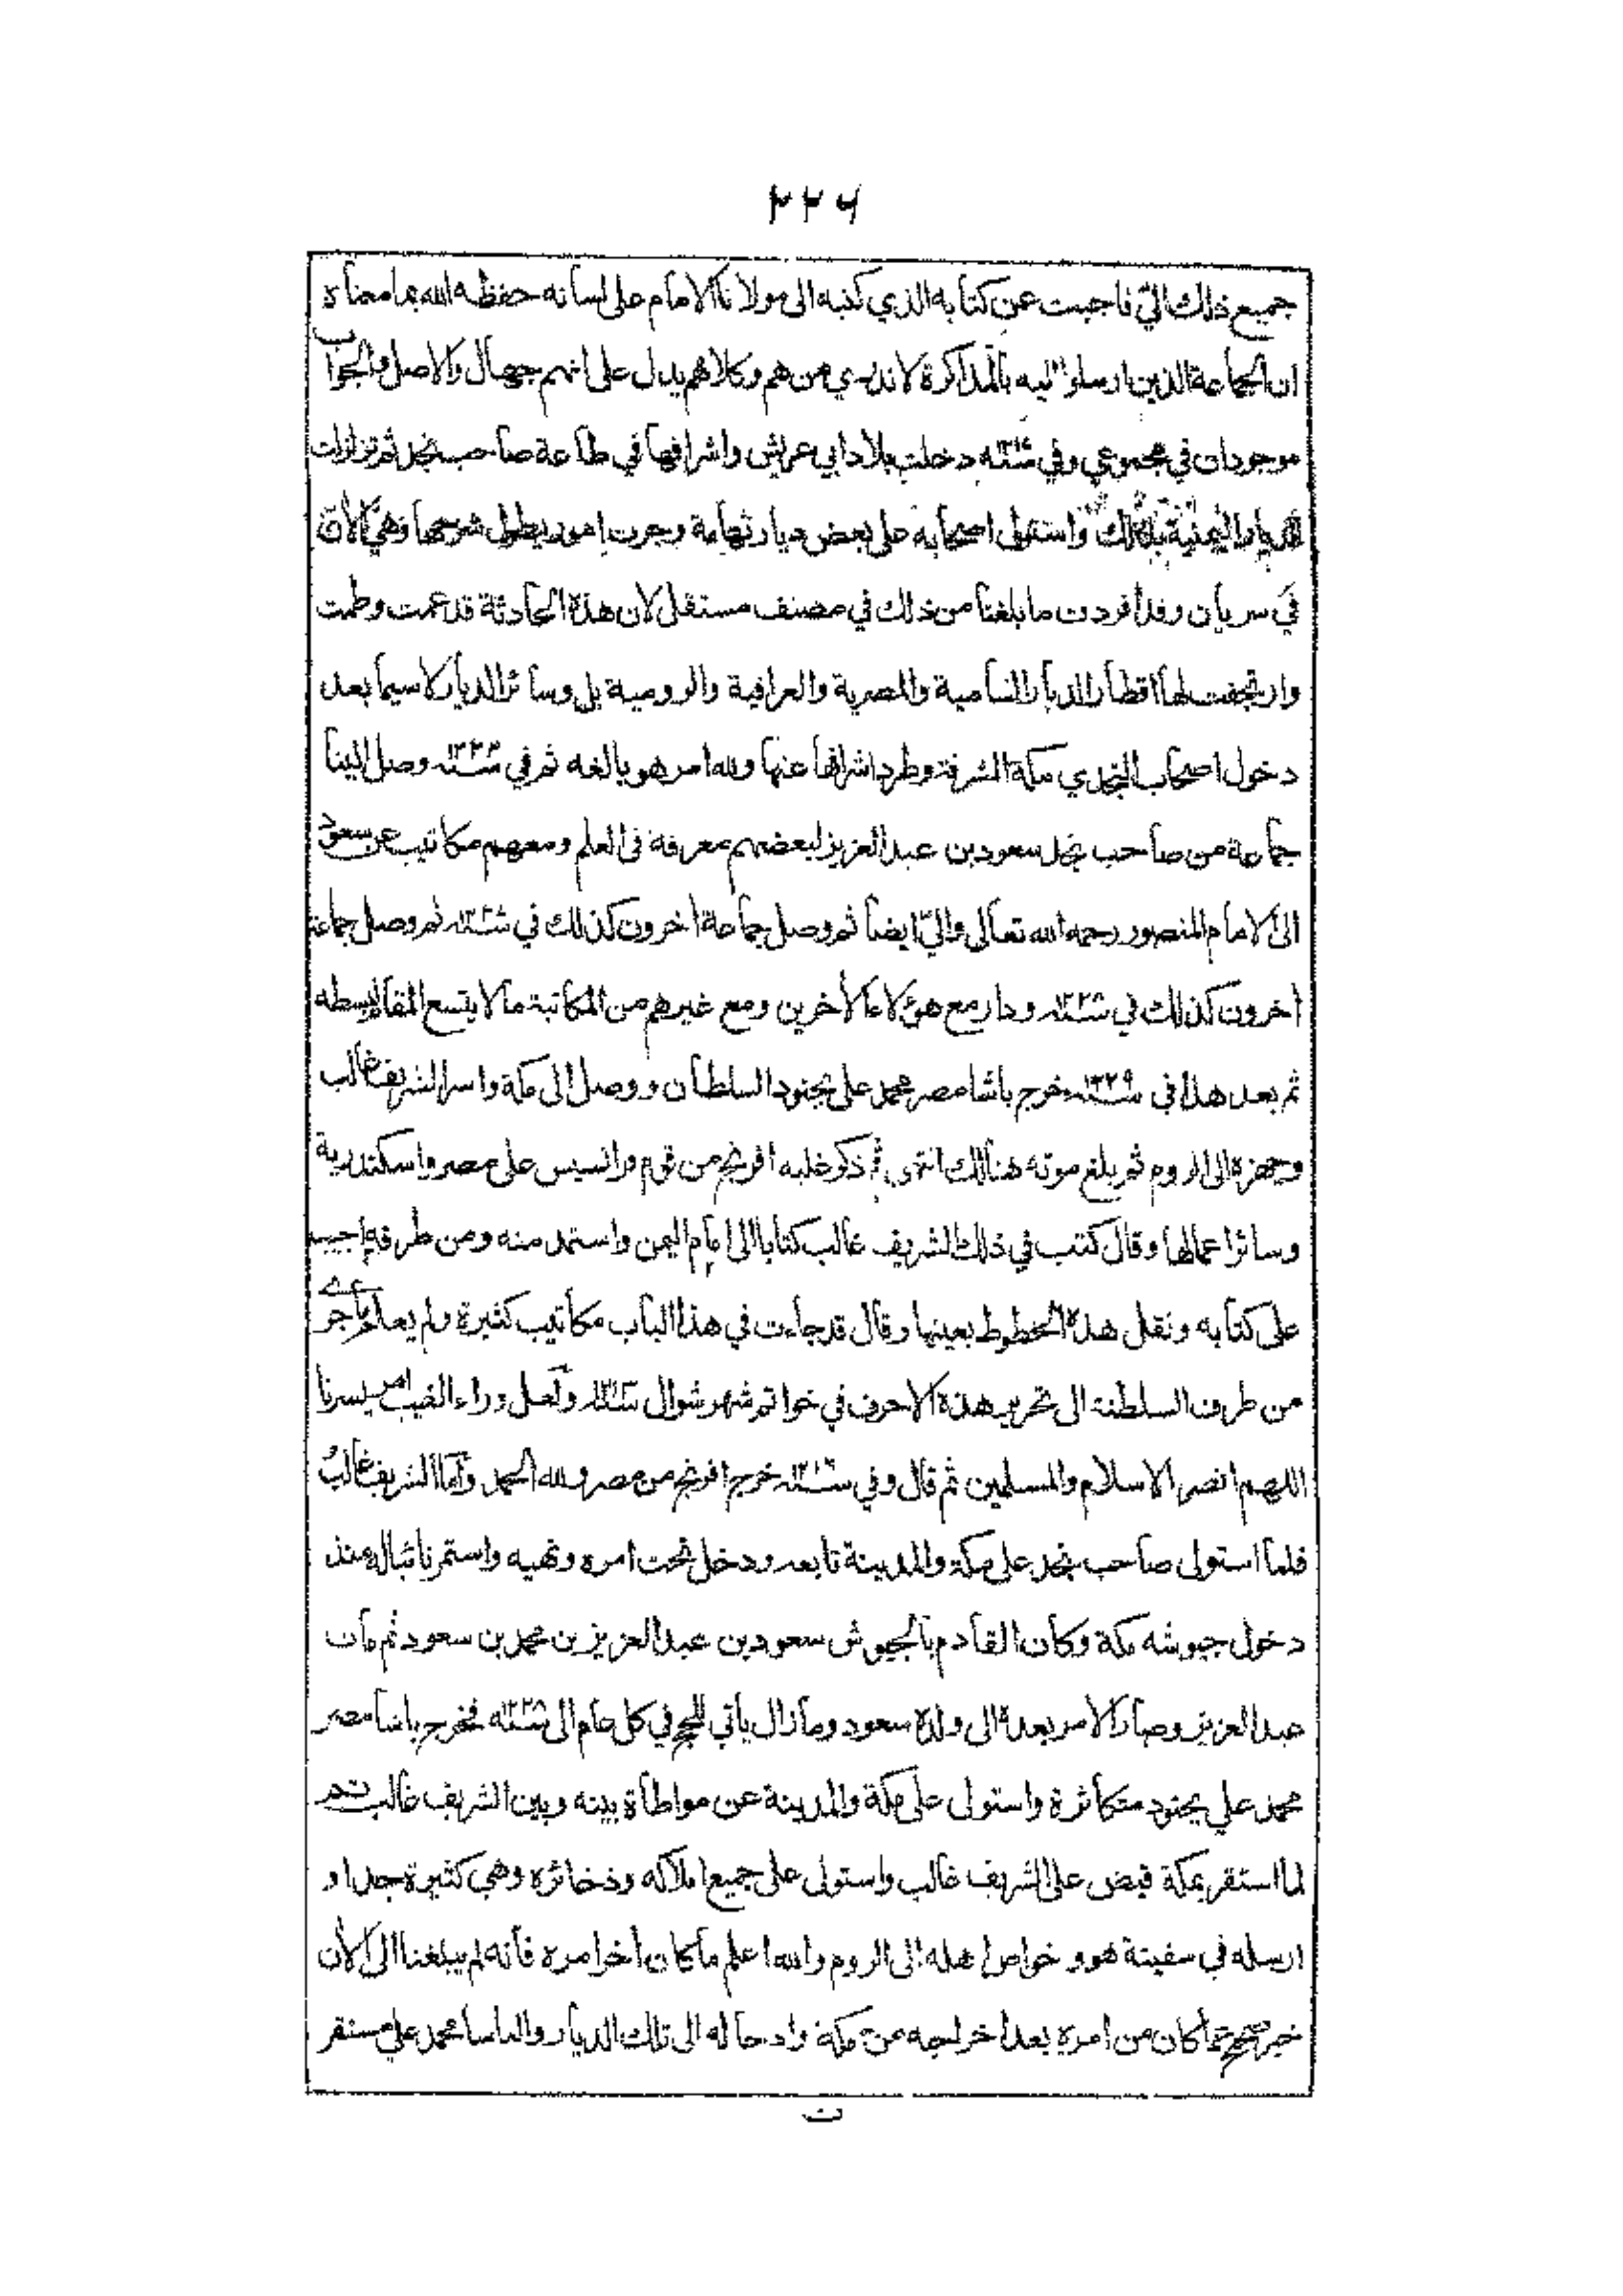 ٢٢٦
جميع ذلك اليّ فاجبت عن كتابه الذي كتبه الى مولانا الامام على لسانه حفظه الله بما معناه
ان الجماعة الذين ارسلوا اليه بالمذاكرة لا ندري من هم وكلامهم يدل على انهم جهال والاصل والجواب
موجودان في مجموعي وفي سنة دخلت بلاد ابي عريش واشرافها في طاعة صاحب نجد ثم تزلزلت
الديار اليمنية بذلك واستولى اصحابه على بعض ديار تهامة وجرت امور يطول شرحها وهي الآن
في سريان وقد أفردت ما بلغنا من ذلك في مصنف مستقل لان هذه الحادثة قد عمت وطمت
وارتجفت لها اقطار الديار الشامية والمصرية والعراقية والرومية بل وسائر الديار لا سيما بعد
دخول اصحاب النجدي مكة المشرفة وطرد اشرافها عنها ولله امر هو بالغه ثم في سنة ١٢٢٢ وصل الينا
جماعة من صاحب نجد سعود بن عبد العزيز لبعضهم معرفة في العلم ومعهم مكاتيب من سعود
الى الامام المنصور رحمه الله تعالى واليّ ايضا ثم وصل جماعة أخرون كذلك في سنة ثم وصل جماعة
أخرون كذلك في سنة ودار مع هؤلاء الأخرين ومع غيرهم من المكاتبة ما لا يتسع المقام لبسطه
ثم بعد هذا في سنة خرج باشا مصر محمد علي بجنود السلطان ووصل الى مكة واسر الشريف غالب
وجهزه الى الروم ثم بلغ موته هنالك انتهى ثم ذكر غلبه افرنج من قوم فرانسيس على مصر واسكندرية
وسائر اعمالها وقال كتب في ذلك الشريف غالب كتابا الى امام اليمن واستمد منه ومن طرفه اجيب
على كتابه ونقل هذه الخطوط بعينها وقال قد جاءت في هذا الباب مكاتيب كثيرة ولم يعلم ما جرى
من طرف السلطنة الى تحرير هذه الاحرف في خواتم شهر شوال سنة ولعل وراء الغيب امر يسرنا
اللهم انصر الاسلام والمسلمين ثم قال وفي سنة خرج افرنج من مصر ولله الحمد وأما الشريف غالب
فلما استولى صاحب نجد على مكة والمدينة تابعه ودخل تحت امره ونهيه واستمر نائبا له منذ
دخول جيوشه مكة وكان القادم بالجيوش سعود بن عبد العزيز بن محمد بن سعود ثم مات
عبد العزيز وصار الامر بعده الى ولده سعود وما زال يأتي للحج في كل عام الى سنة فخرج باشا مصر
محمد علي بجنود متكاثرة واستولى على مكة والمدينة عن مواطأة بينه وبين الشريف غالب ثم
لما استقر بمكة قبض على الشريف غالب واستولى على جميع املاكه وذخائره وهي كثيرة جدا و
ارسله في سفينة هو وخواص اهله الى الروم والله اعلم ما كان أخر امره فأنه لم يبلغنا الى الآن
خبر صحيح عما كان من امره بعد اخراجه من مكة وادخاله الى تلك الديار والباشا محمد علي مستقر